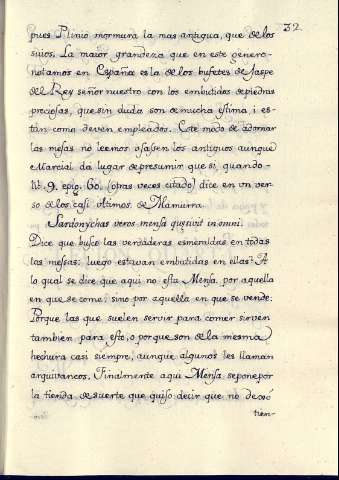 32
pues Plinio mormura la mas antigua, que de los
suios. La maior grandeza que en este genero
notamos en España es la de los bufetes de Jaspe
del Rey señor nuestro con los embutidos de piedras
preciosas, que sin duda son de mucha estima, i es-
tàn como deven empleados. Este modo de adornar
las mesas no leemos osassen los antiguos aunque
Marcial da lugar de presumir que si quando-
lib. 9. epig. 60. (otras veces citado) dice en vn ver-
so de los casi vltimos. de Mamurra.
Sardonychas veros mensa quesivit in omni.
Dice que buscò las verdaderas esmeraldas en todas
las messas: luego estavan embutidas en ellas? A
lo qual se dice que aqui no esta Mensa, por aquella
en que se come, sino por aquella en que se vende.
Porque las que suelen servir para comer sirven
tambien para esto, o porque son de la mesma
hechura casi siempre, aunque algunos les llaman
arquivancos. Finalmente aqui Mensa se pone por
la tienda de suerte que quiso decir que no dexó
tien-